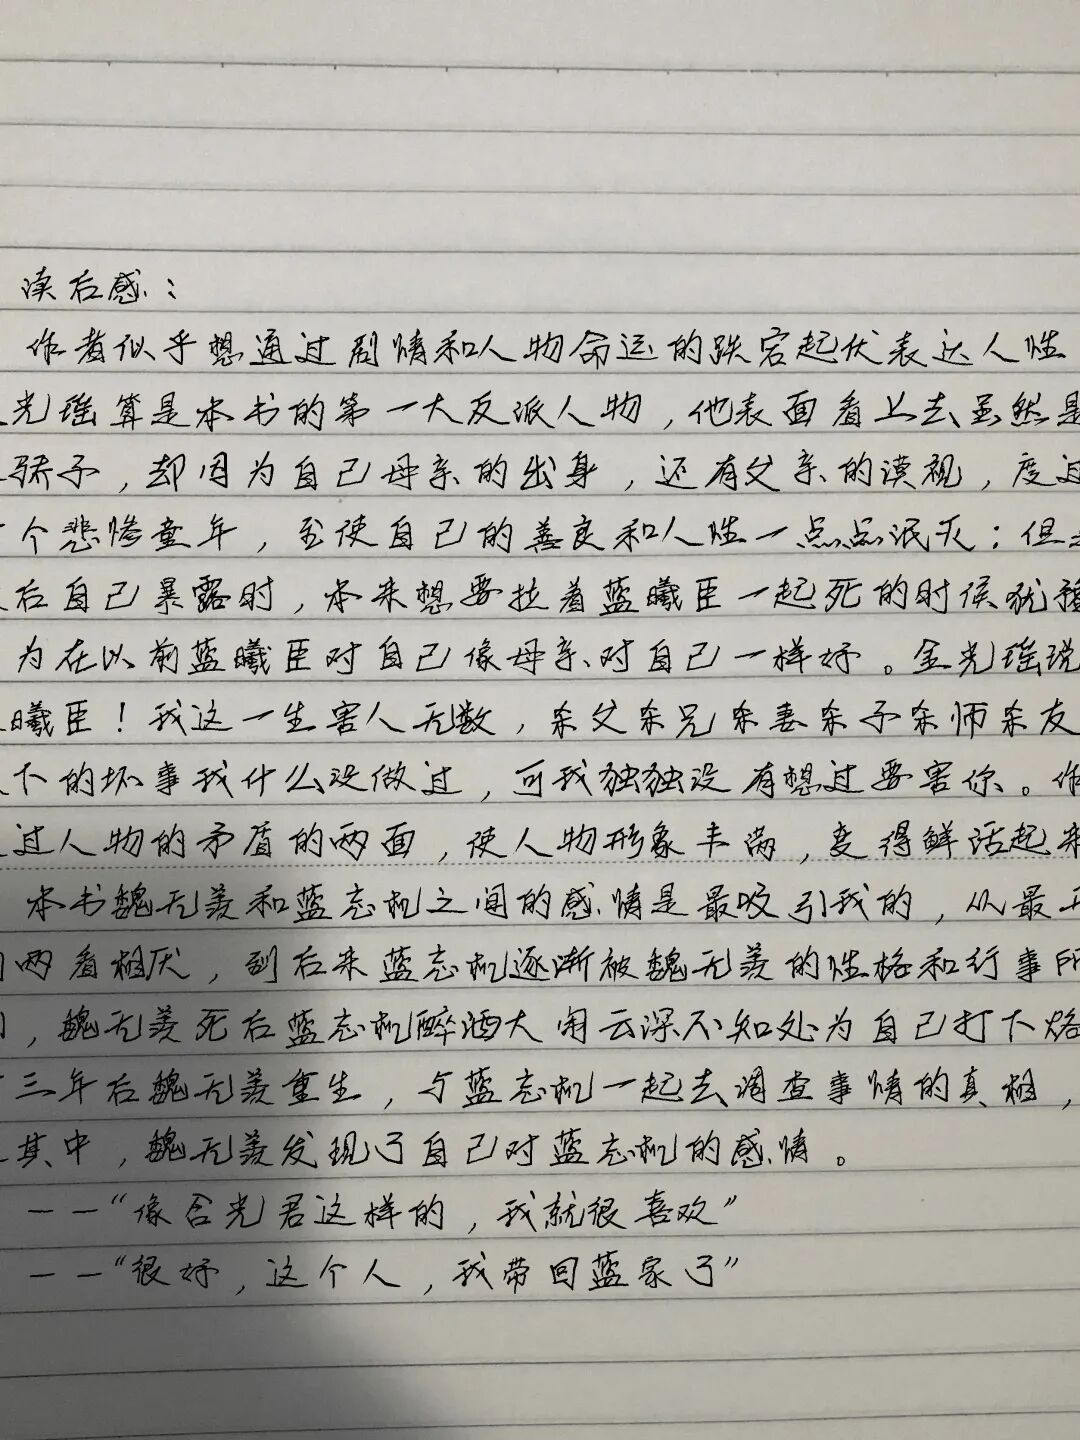 读后感：
作者似乎想通过剧情和人物命运的跌宕起伏表达人性
光瑶算是本书的第一大反派人物，他表面看上去虽然是
骄子，却因为自己母亲的出身，还有父亲的漠视，度过
个悲惨童年，至使自己的善良和人性一点点泯灭；但
后自己暴露时，本来想要拉着蓝曦臣一起死的时候犹豫
为在以前蓝曦臣对自己像母亲对自己一样好。金光瑶说
曦臣！我这一生害人无数，杀父杀兄杀妻杀子杀师杀友
下的坏事我什么没做过，可我独独没有想过要害你。作
过人物的矛盾的两面，使人物形象丰满，变得鲜活起来
本书魏无羡和蓝忘机之间的感情是最吸引我的，从最开
两看相厌，到后来蓝忘机逐渐被魏无羡的性格和行事所
，魏无羡死后蓝忘机醉酒大闹云深不知处为自己打下烙
三年后魏无羡重生，与蓝忘机一起去调查事情的真相，
其中，魏无羡发现了自己对蓝忘机的感情。
——“像含光君这样的，我就很喜欢”
——“很好，这个人，我带回蓝家了”